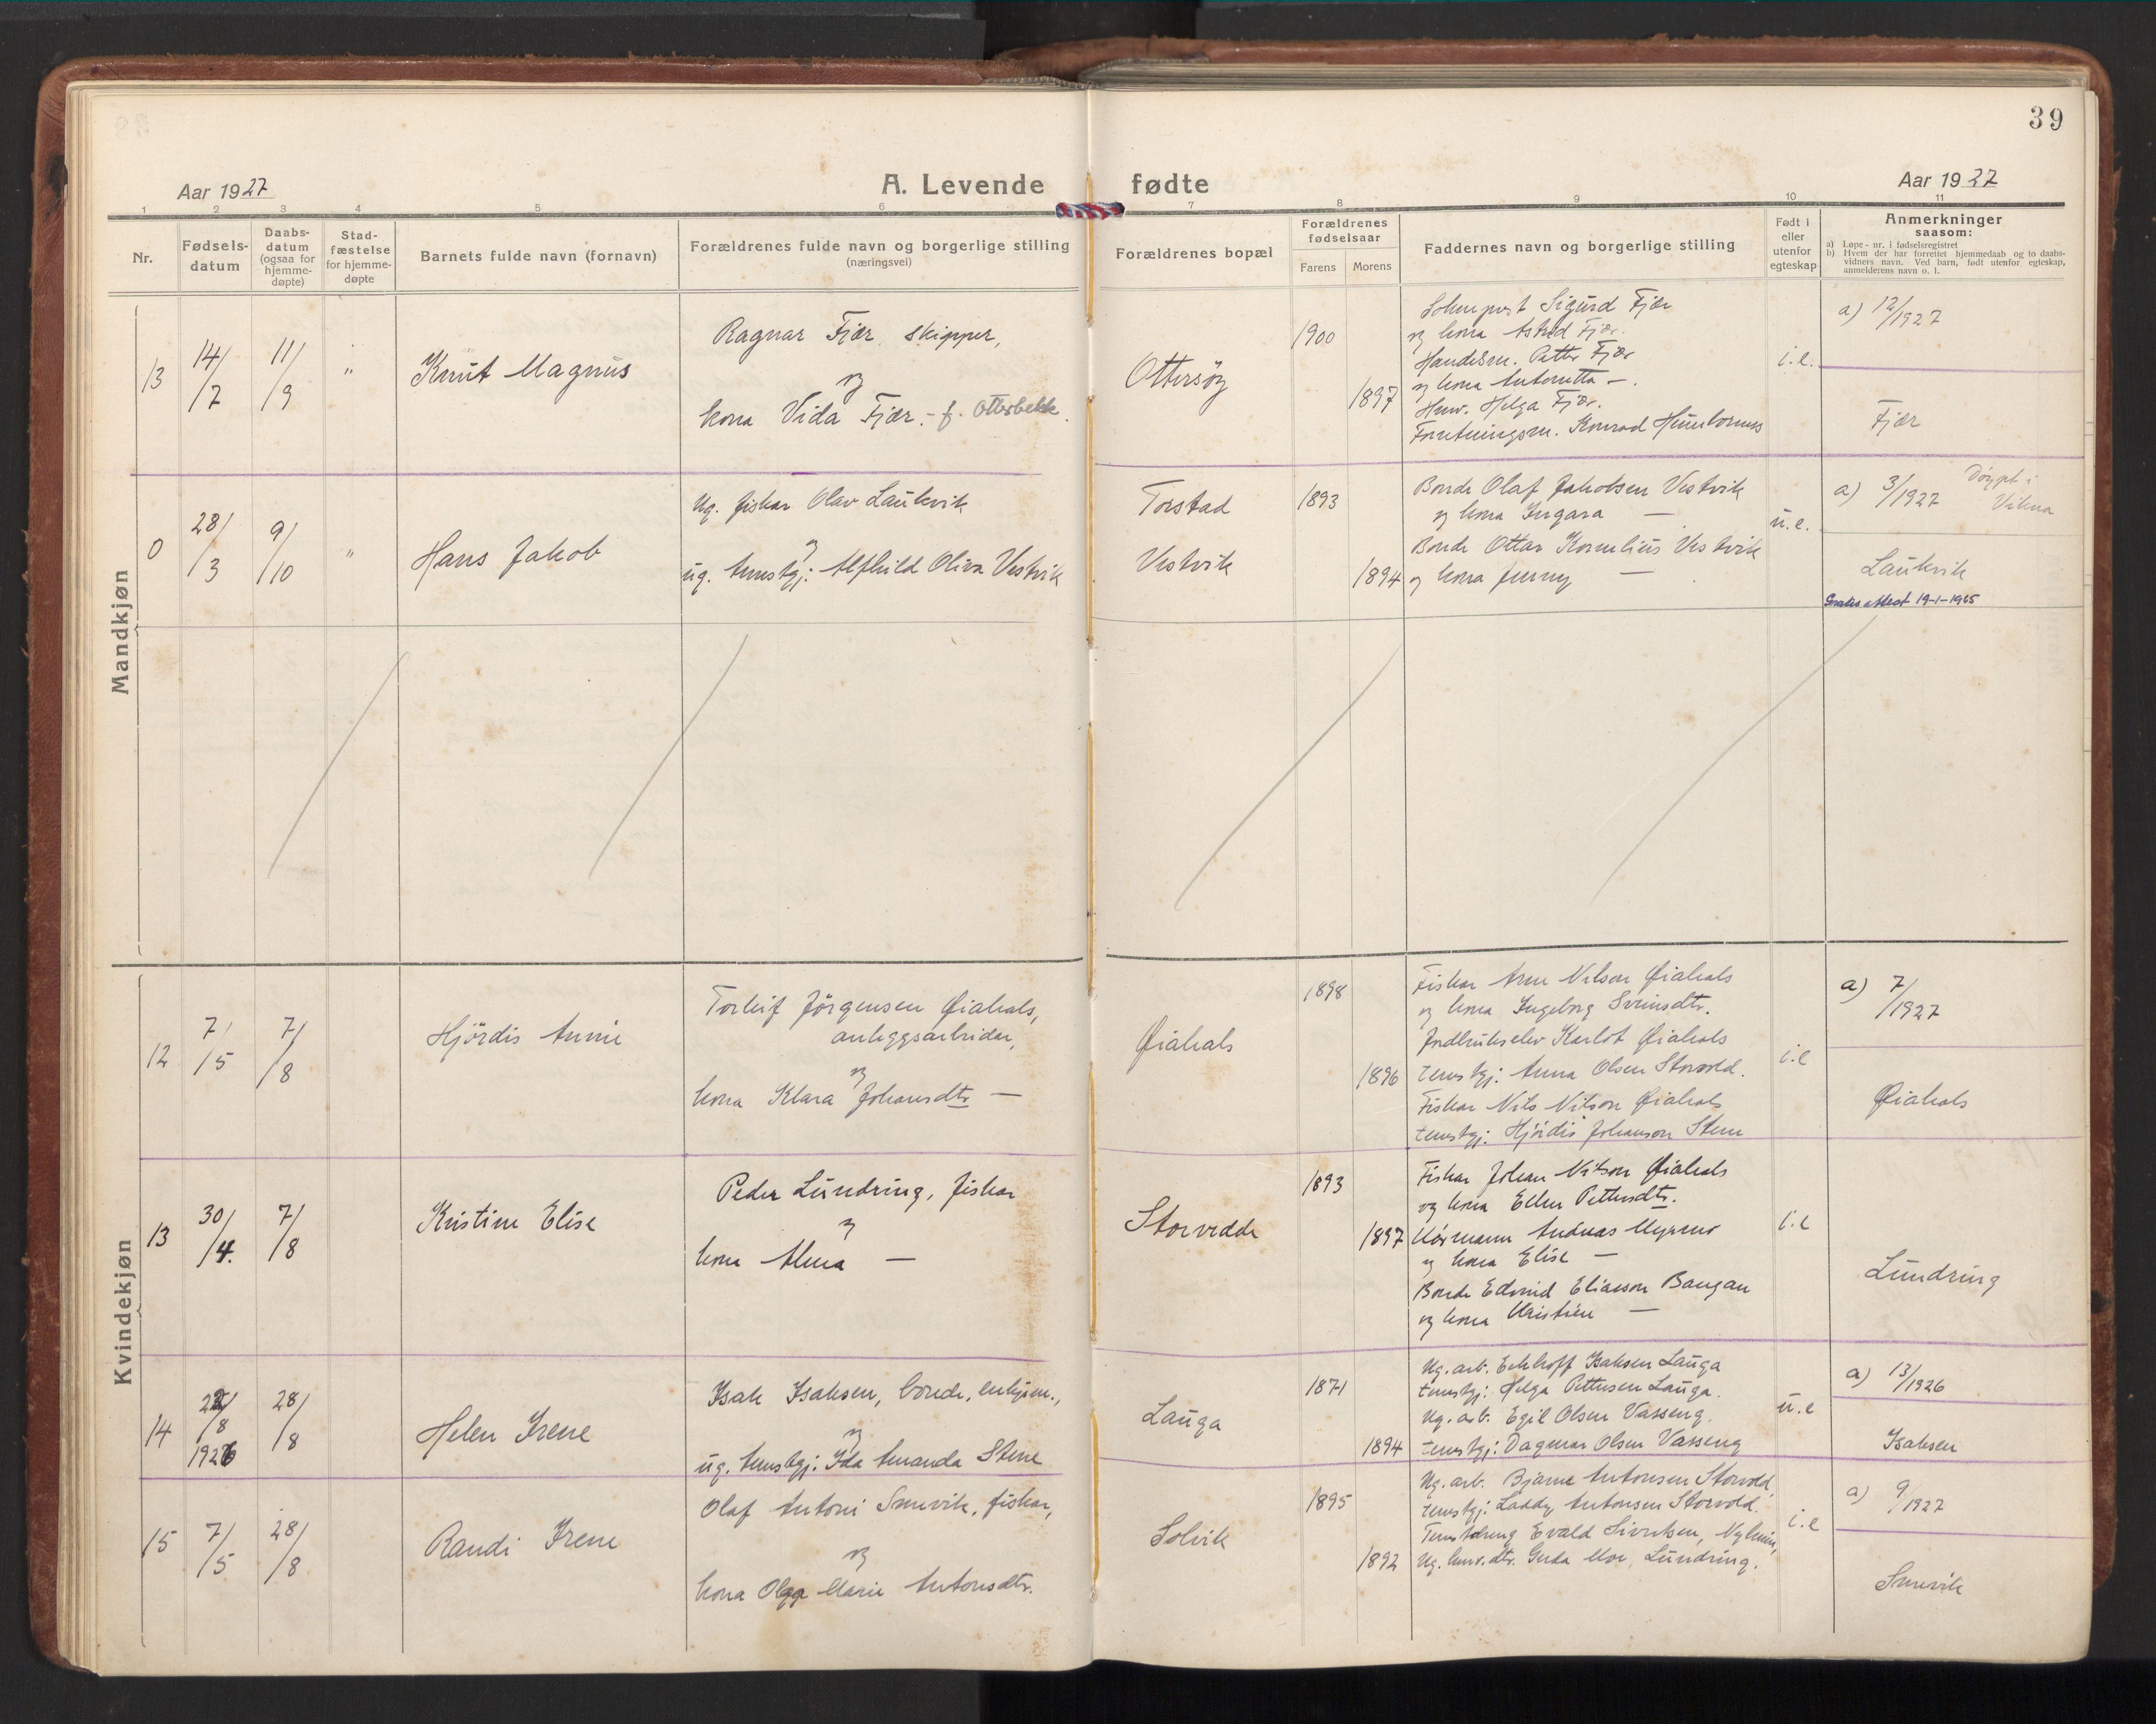 39
Aar 1927
A. Levende fødte
Aar 1927
1 2 3 4 5 6 7 8 9 10 11
Nr.
Fødsels-
datum
Daabs-
datum
(ogsaa for
hjemme-
døpte)
Stad-
fæstelse
for hjemme-
døpte
Barnets fulde navn (fornavn)
Forældrenes fulde navn og borgerlige stilling
(næringsvei)
Forældrenes bopæl
Forældrenes
fødselsaar
Farens
Morens
Faddernes navn og borgerlige stilling
Født i
eller
utenfor
egteskap
Anmerkninger
saasom:
a) Løpe-nr. i fødselsregistret
b) Hvem der har forrettet hjemmedaab og to daabs-
vidners navn. Ved barn, født utenfor egteskap,
anmelderens navn o. l.
Mandkjøn
13
14/7
11/9
"
Knut Magnus
Ragnar Fjær, skipper,
og
kona Vida Fjær. - f. Otterbekk.
Ottersøy
1900
1897
Sigurd Fjær
og kona Astrid Fjær.
Handelsm. Petter Fjær
og kona Antonetta —.
Husv. Helga Fjær.
Forretningsm. Konrad
i.e.
a) 12/1927
Fjær
0
28/3
9/10
"
Hans Jakob
Ug. fiskar Olav Laukvik
og
ug. tenestgj: Alfhild Oliva Vestvik
Torstad
Vestvik
1893
1894
Bonde Olaf Jakobsen Vestvik
og kona Ingara —
Bonde Ottar Kornelius Vestvik
og kona Jenny —
u.e.
a) 3/1927 Døypt i
Vikna
Laukvik
Gratis attest 19-1-1965
Kvindekjøn
12
7/5
7/8
Hjördis Annie
Torleif Jörgensen Øiahals,
anleggsarbeidar,
og
kona Klara Johansdtr —
Øiahals
1898
1896
Fiskar Arne Nilson Øiahals
og kona Ingeborg Sveinsdtr.
Jordbrukselev Karlot Øiahals
tenestgj: Anna Olsen Storvold.
Fiskar Nils Nilson Øiahals
tenestgj: Hjördis Johanson Stene
i.e
a) 7/1927
Øiahals
13
30/4.
7/8
Kristine Elise
Peder Lundring, fiskar
og
kona Alma —
Storvedde
1893
1897
Fiskar Johan Nilson Øiahals
og kona Ellen Pettersdtr.
Kårmann Andreas Myrmo
og kona Elise —
Bonde Edvind Eliasson Baugan
og kona Kristine —
i.e
Lundring
14
22/8
1926
28/8
Helen Irene
Isak Isaksen, bonde, enkjem.,
og
ug. tenestgj: Ida Amanda Stene
Lauga
1871
1894
Ug. arb. Eckhoff Isaksen Lauga
tenestgj: Helga Pettersen Lauga.
Ug. arb. Egil Olsen Vasseng.
tenestgj: Dagmar Olsen Vasseng
u.e
a) 13/1926
Isaksen
15
7/5
28/8
Randi Irene
Olaf Antoni Smevik, fiskar,
og
kona Olga Marie Antonsdtr.
Solvik
1895
1892
Ug. arb. Bjarne Antonsen Storvold,
tenestgj: Laddy Antonsen Storvold.
Tenestdreng Evald Sivertsen,
Ug. husv. dtr. Gerda Moe, Lundring.
i.e
a) 9/1927
Smevik